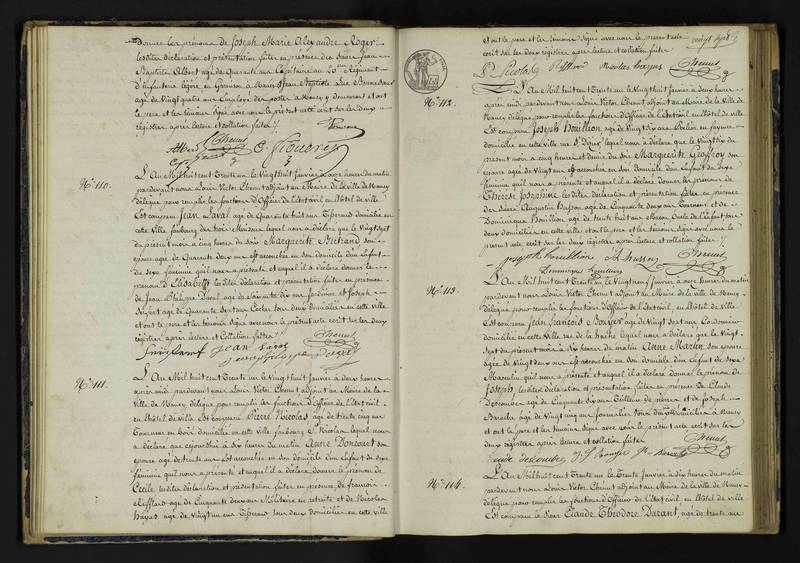 donner les prénoms de Joseph Marie Alexandre Roger
Lesdites déclaration et présentation faites en présence des sieurs Jean
Baptiste Albert agé de Quarante ans Capitaine au 20me Régiment
d'infanterie légère en Garnison à Nancy et Jean Baptiste
agé de vingt huit ans Employé des postes à Nancy y demeurant et ont
le père et les témoins signé avec nous le présent acte écrit sur les deux
régistres après lecture et collation faites
Albert Chenut
No. 110.
L'An Mil huit cent Trente un le Vingt huit Janvier à heures du matin
pardevant nous Louis Victor Chenut adjoint au Maire de la Ville de Nancy
délégué pour remplir les fonctions d'Officier de l'état civil en l'hôtel de Ville
Est comparu Jean Laval agé de Quarante huit ans Tisserand domicilié en
cette Ville faubourg des trois Maisons lequel nous a déclaré que le Vingt sept
du présent mois à cinq heures du soir Marguerite Bertrand son
épouse agée de Quarante deux ans Est accouchée en son domicile d'un Enfant
du sexe féminin qu'il nous a présenté et auquel il a déclaré donner le
prénom d'Elisabeth lesdites déclaration et présentation faites en présence
de Jean Philippe Laval agé de soixante dix ans Jardinier et Joseph
agé de Quarante sept ans Cocher tous deux domiciliés en cette Ville
et ont le père et les témoins signé avec nous le présent acte écrit sur les deux
régistres après lecture et collation faites
Chenut
Jean Laval
No. 111.
L'An Mil huit cent Trente un le Vingt huit Janvier à deux heures
après midi pardevant nous Louis Victor Chenut adjoint au Maire de la Ville
de Nancy, délégué pour remplir les fonctions d'Officier de l'état civil
en l'hôtel de Ville Est comparu Pierre Nicolas agé de trente cinq ans
Tourneur en bois domicilié en cette Ville faubourg St Nicolas lequel nous
a déclaré que cejourd'hui à dix heures du matin Anne Doncourt son
épouse agée de trente ans Est accouchée en son domicile d'un Enfant du sexe
féminin qu'il nous a présenté et auquel il a déclaré donner le prénom de
Cécile lesdites déclaration et présentation faites en présence de François
agé de Cinquante deux ans Militaire en retraite et de Nicolas
Hayus agé de vingt un ans Tisserand tous deux domiciliés en cette Ville
et ont le père et les témoins signé avec nous le présent acte
écrit sur les deux régistres après lecture et collation faites
P. Nicolas Nicolas Hayus Chenut
No. 112.
L'An Mil huit cent Trente un le Vingt huit Janvier à deux heures
après midi pardevant nous Louis Victor Chenut adjoint au Maire de la Ville de
Nancy délégué pour remplir les fonctions d'Officier de l'état civil en l'hôtel de ville
Est comparu Joseph Houillion agé de Vingt six ans
domicilié en cette ville lequel nous a déclaré que le Vingt six du
présent mois à cinq heures et demie du soir Marguerite Geoffroy son
épouse agée de Vingt ans Est accouchée en son domicile d'un Enfant du sexe
féminin qu'il nous a présenté et auquel il a déclaré donner les prénoms de
Thérèse Joséphine lesdites déclaration et présentation faites en présence
des sieurs Augustin Husson agé de Cinquante deux ans Tourneur et de
Dominique Houillion agé de trente huit ans Maçon Oncle de l'enfant tous
deux domiciliés en cette ville et ont le père et les témoins signé avec nous le
présent acte écrit sur les deux régistres après lecture et collation faites
Joseph houillion A husson Chenut
Dominique houillion
No. 113.
L'An Mil huit cent Trente un le Vingt neuf Janvier à onze heures du matin
pardevant nous Louis Victor Chenut adjoint au Maire de la Ville de Nancy
délégué pour remplir les fonctions d'Officier de l'état civil, en l'hôtel de Ville
Est comparu Jean François Bouyer agé de Vingt sept ans Cordonnier
domicilié en cette Ville rue de la hache lequel nous a déclaré que le Vingt
sept du présent mois à dix heures du matin Anne Martin son épouse
agée de Vingt deux ans Est accouchée en son domicile d'un Enfant du sexe
Masculin qu'il nous a présenté et auquel il a déclaré donner le prénom de
Joseph, lesdites déclaration et présentation faites en présence de Claude
Descombes agé de Cinquante six ans Tailleur de pierres et de Joseph
agé de Vingt cinq ans ferronnier tous deux domiciliés à Nancy
et ont le père et les témoins signé avec nous le présent acte écrit sur les
deux régistres après lecture et collation faites
Chenut
No. 114.
L'An Mil huit cent Trente un le Trente Janvier à dix heures du matin
pardevant nous Louis Victor Chenut adjoint au Maire de la Ville de Nancy
délégué pour remplir les fonctions d'Officier de l'état civil en l'hôtel de Ville
Est comparu le sieur Claude Théodore Durant, agé de trente ans